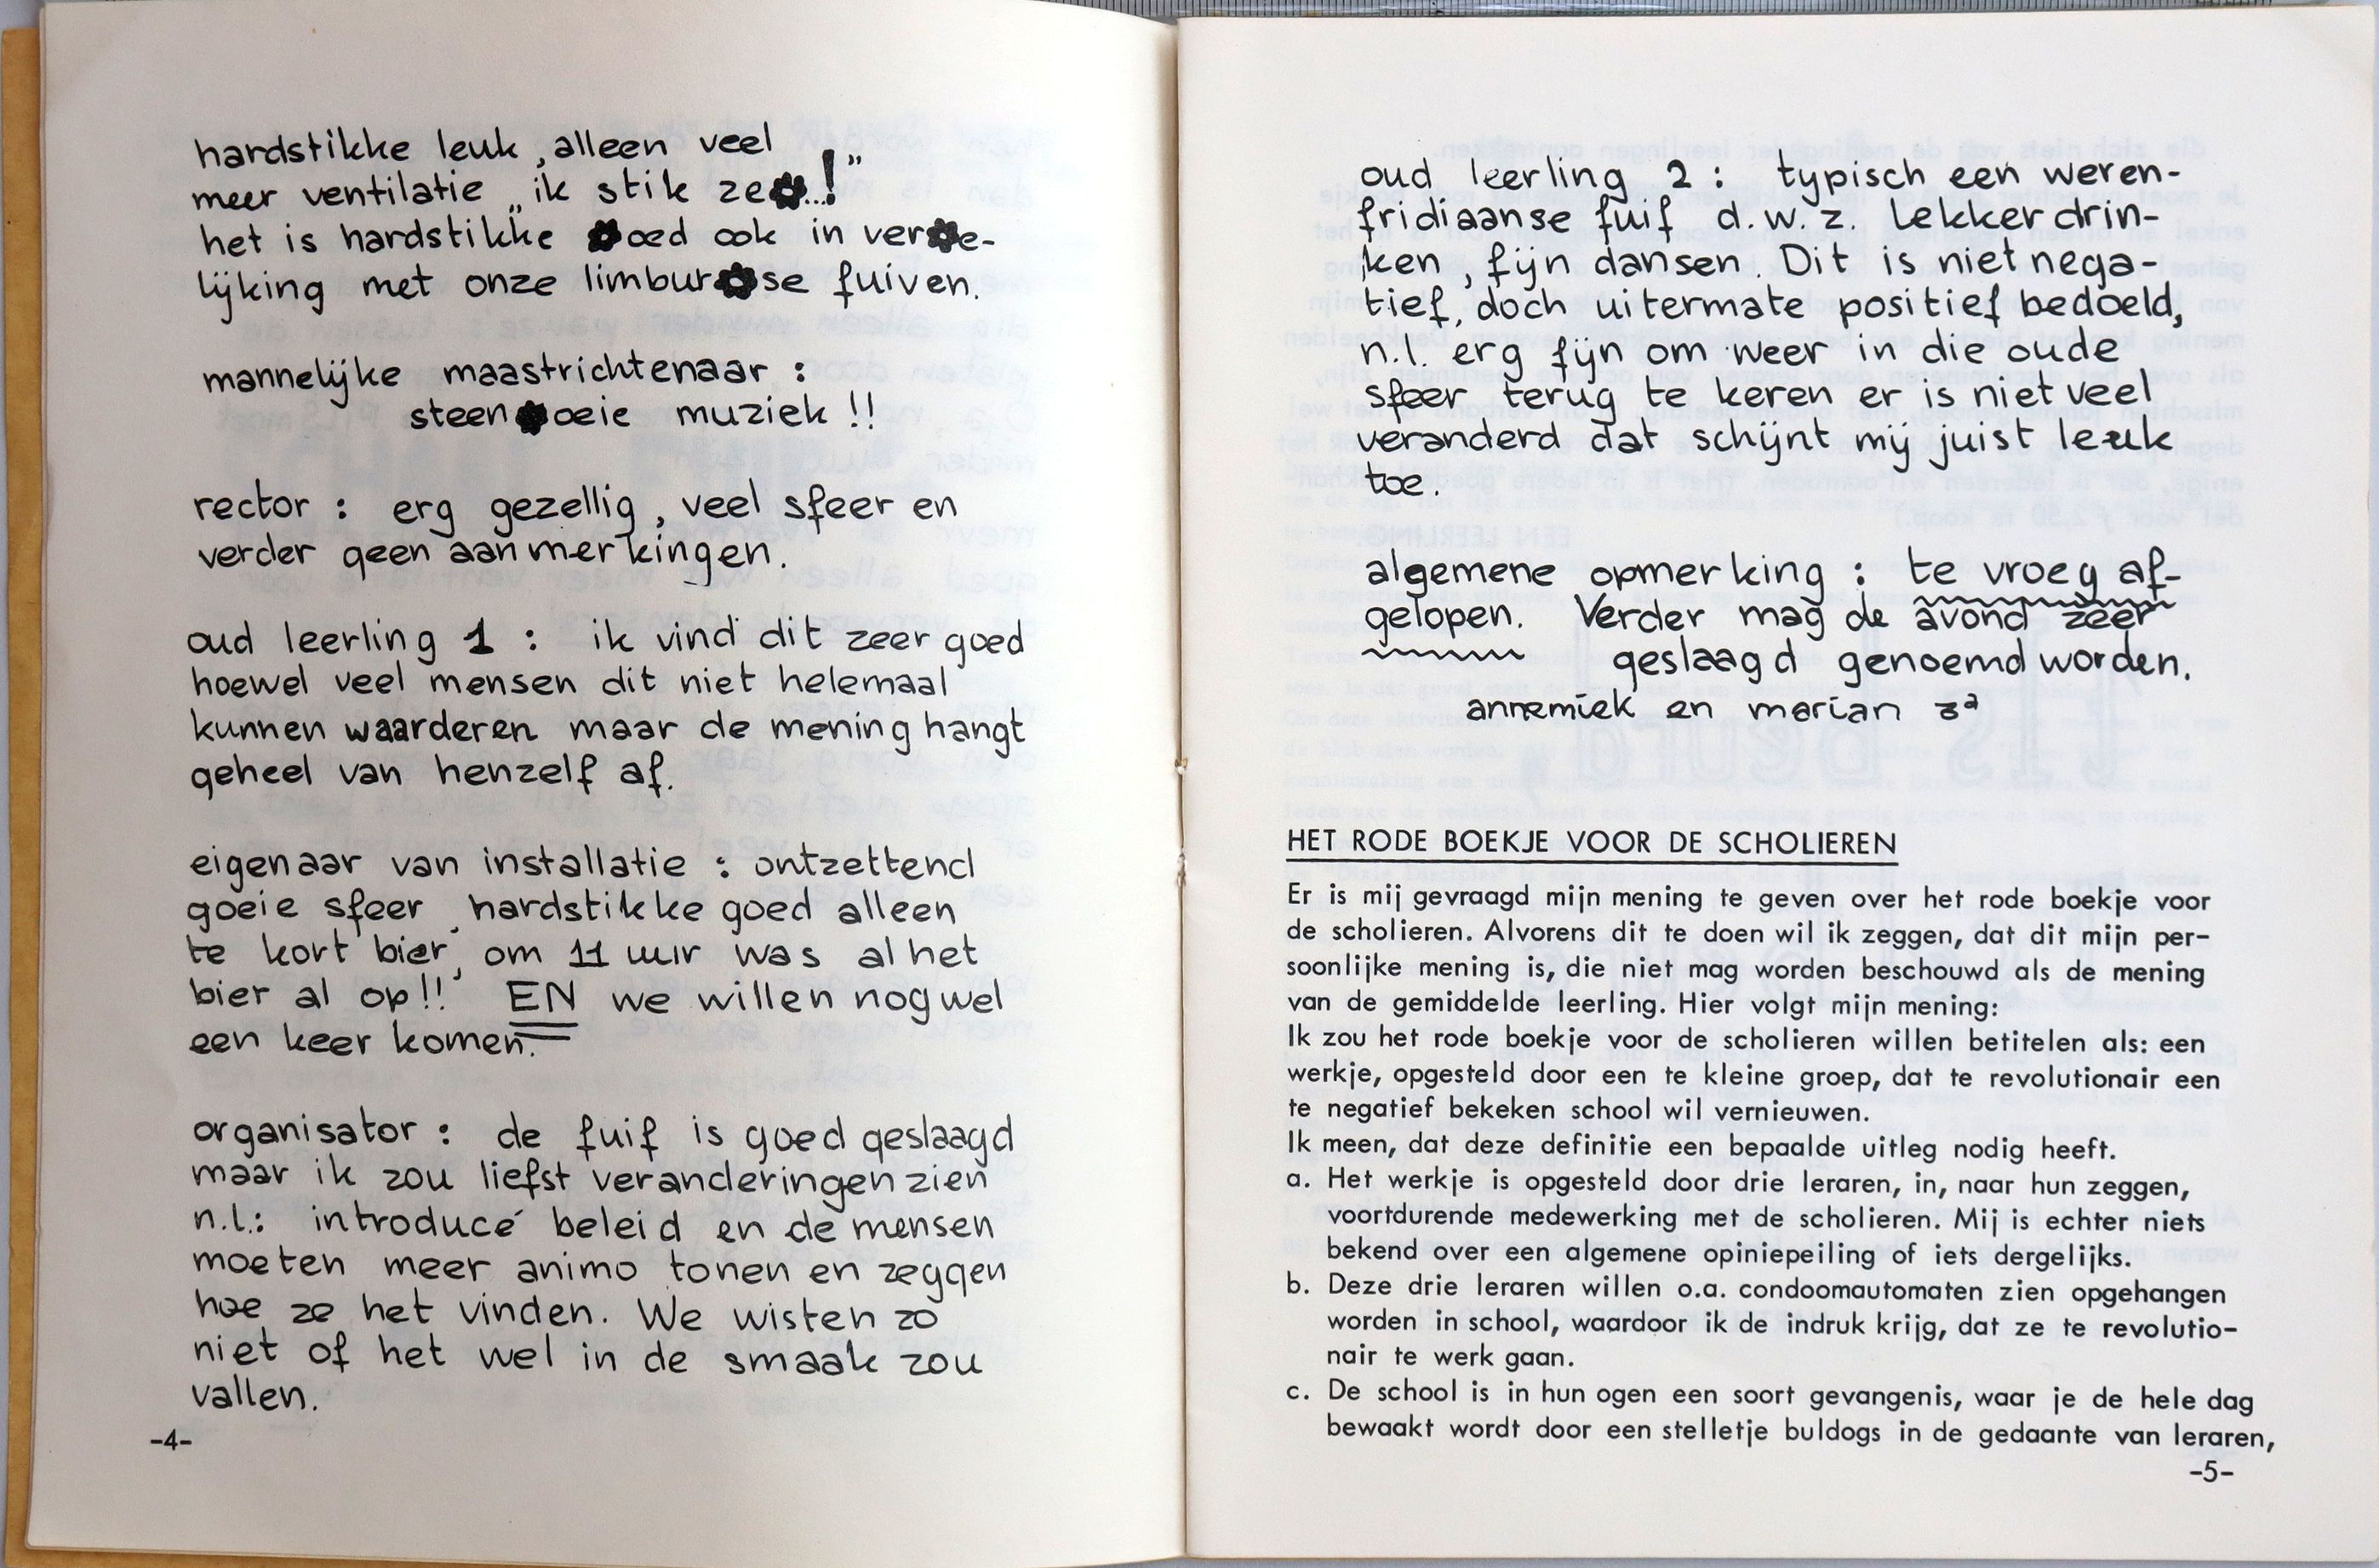 hardstikke leuk, alleen veel
meer ventilatie „ik stik ze✿..!”
het is hardstikke ✿oed ook in ver✿e-
lijking met onze limbur✿se fuiven.
mannelijke maastrichtenaar :
steen✿oeie muziek !!
rector : erg gezellig, veel sfeer en
verder geen aanmerkingen.
oud leerling 1 : ik vind dit zeer goed
hoewel veel mensen dit niet helemaal
kunnen waarderen maar de mening hangt
geheel van henzelf af.
eigenaar van installatie : ontzettend
goeie sfeer, hardstikke goed alleen
te kort bier, om 11 uur was al het
bier al op!! EN we willen nog wel
een keer komen.
organisator : de fuif is goed geslaagd
maar ik zou liefst veranderingen zien
n.l.: introducé beleid en de mensen
moeten meer animo tonen en zeggen
hoe ze het vinden. We wisten zo
niet of het wel in de smaak zou
vallen.
-4-
oud leerling 2 : typisch een weren-
fridiaanse fuif d.w.z. lekker drin-
ken, fijn dansen. Dit is niet nega-
tief, doch uitermate positief bedoeld,
n.l. erg fijn om weer in die oude
sfeer terug te keren er is niet veel
veranderd dat schijnt mij juist leuk
toe.
algemene opmerking : te vroeg af-
gelopen. Verder mag de avond zeer
geslaagd genoemd worden.
annemiek en marian 3a
HET RODE BOEKJE VOOR DE SCHOLIEREN
Er is mij gevraagd mijn mening te geven over het rode boekje voor
de scholieren. Alvorens dit te doen wil ik zeggen, dat dit mijn per-
soonlijke mening is, die niet mag worden beschouwd als de mening
van de gemiddelde leerling. Hier volgt mijn mening:
Ik zou het rode boekje voor de scholieren willen betitelen als: een
werkje, opgesteld door een te kleine groep, dat te revolutionair een
te negatief bekeken school wil vernieuwen.
Ik meen, dat deze definitie een bepaalde uitleg nodig heeft.
a. Het werkje is opgesteld door drie leraren, in, naar hun zeggen,
voortdurende medewerking met de scholieren. Mij is echter niets
bekend over een algemene opiniepeiling of iets dergelijks.
b. Deze drie leraren willen o.a. condoomautomaten zien opgehangen
worden in school, waardoor ik de indruk krijg, dat ze te revolutio-
nair te werk gaan.
c. De school is in hun ogen een soort gevangenis, waar je de hele dag
bewaakt wordt door een stelletje buldogs in de gedaante van leraren,
-5-